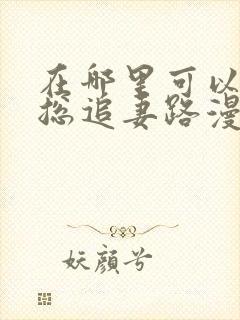 在哪里可以
总追妻路漫
妖颜兮